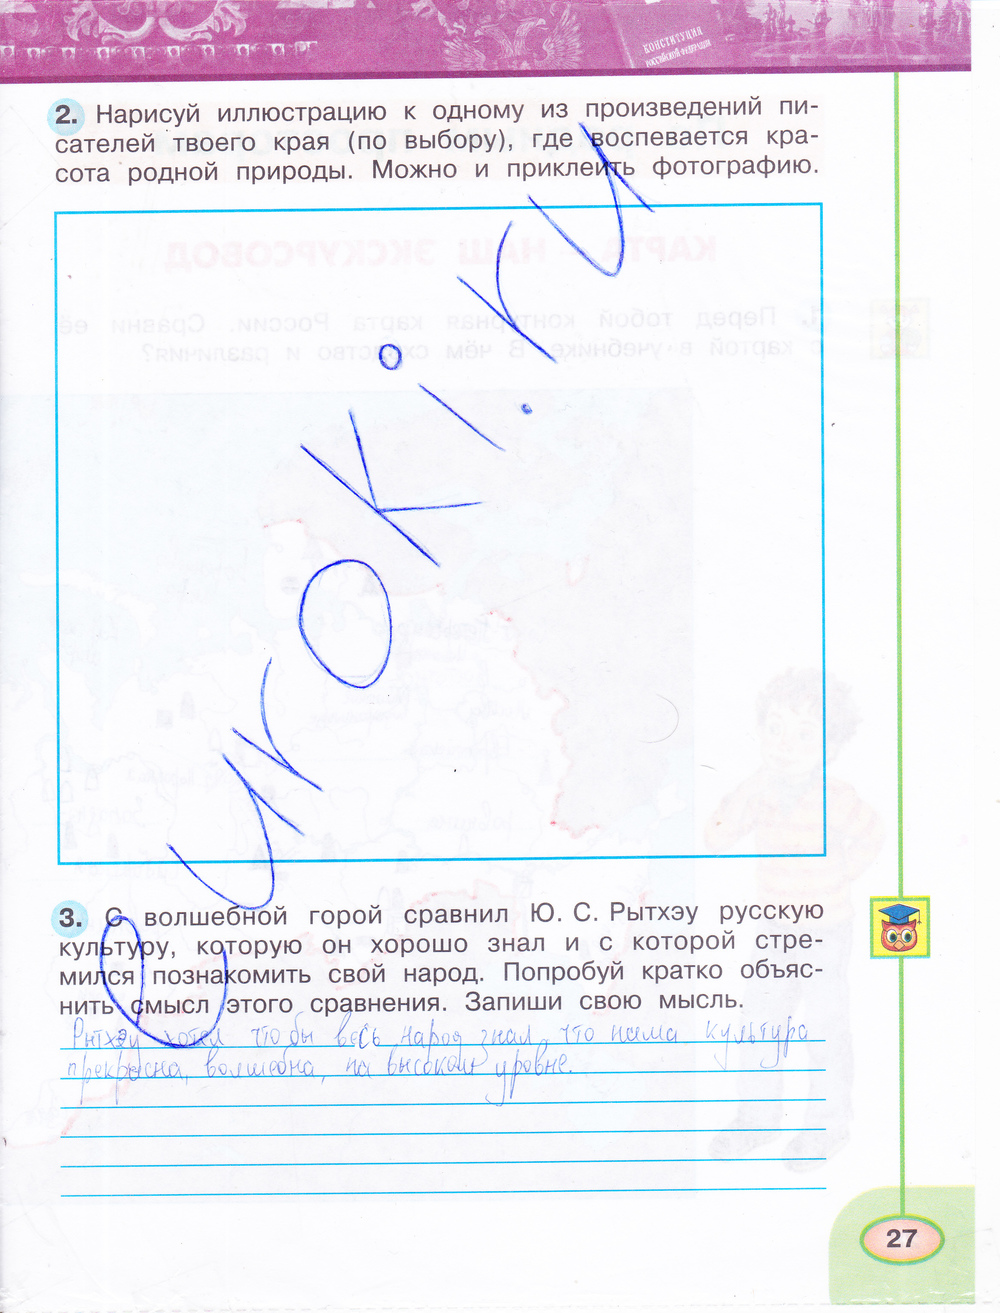 КОНСТИТУЦИЯ
РОССИЙСКОЙ ФЕДЕРАЦИИ
2. Нарисуй иллюстрацию к одному из произведений пи-
сателей твоего края (по выбору), где воспевается кра-
сота родной природы. Можно и приклеить фотографию.
КАРТА – НАШ ЭКСКУРСОВОД
1. Перед тобой контурная карта России. Сравни её
с картой в учебнике. В чём сходство и различия?
eurokі.ru
3. С волшебной горой сравнил Ю. С. Рытхэу русскую
культуру, которую он хорошо знал и с которой стре-
мился познакомить свой народ. Попробуй кратко объяс-
нить смысл этого сравнения. Запиши свою мысль.
Рытхэу хотел что бы весь народ знал, что наша культура
прекрасна, волшебна, на высоком уровне.
27